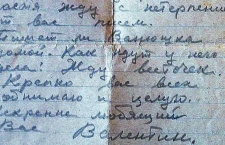 жду с нетерпением
от вас писем.
Пишет ли Ванюшка
домой. Как идут у него
дела. Жду весточек.
Крепко вас всех
обнимаю и целую.
Искренне любящий
Вас Валентин.